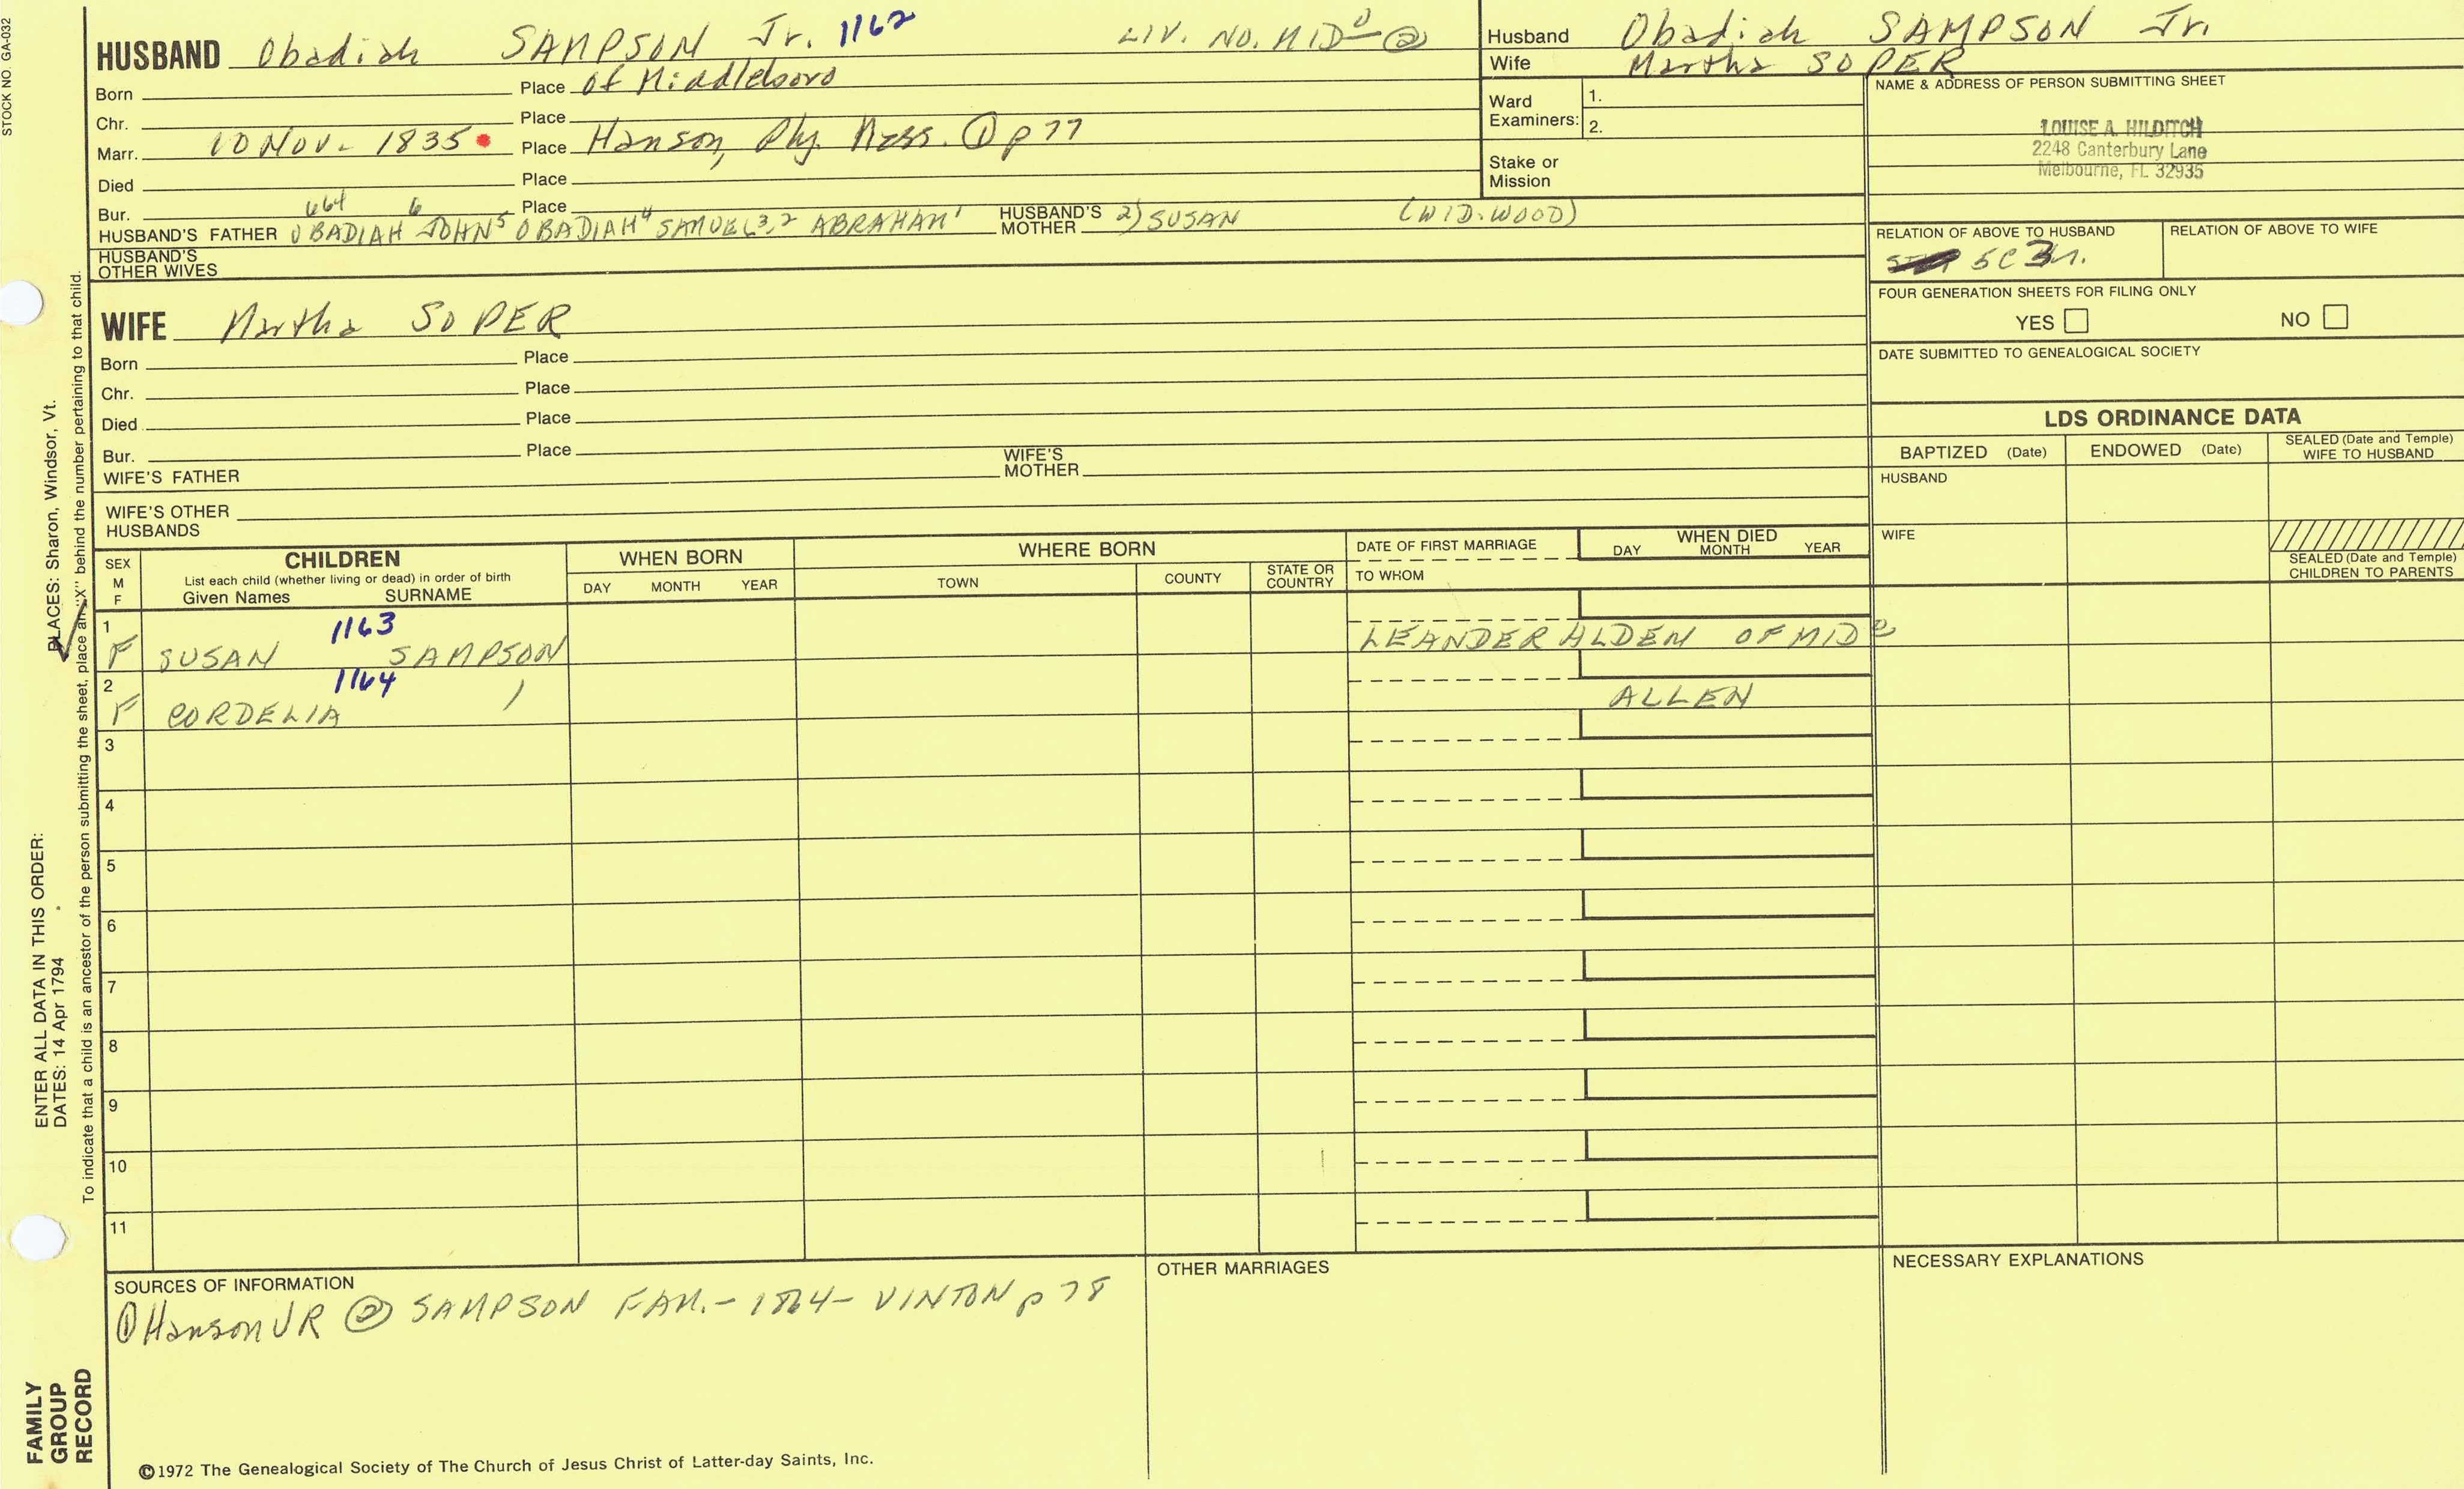 STOCK NO. GA-032
HUSBAND Obadiah SAMPSON Jr. 1162 LIV. NO. MIDº ②
Born Place of Middleboro
Chr. Place
Marr. 10 Nov. 1835 Place Hanson, Ply. Mass. ① p 77
Died Place
Bur. Place
664 6
HUSBAND'S FATHER OBADIAH JOHN⁵ OBADIAH⁴ SAMUEL³,² ABRAHAM¹ HUSBAND'S MOTHER 2) SUSAN (WID. WOOD)
HUSBAND'S OTHER WIVES
Husband Obadiah SAMPSON Jr.
Wife Martha SOPER
Ward Examiners: 1.
2.
Stake or Mission
NAME & ADDRESS OF PERSON SUBMITTING SHEET
LOUISE A. HILDITCH
2248 Canterbury Lane
Melbourne, FL 32935
RELATION OF ABOVE TO HUSBAND RELATION OF ABOVE TO WIFE
5C 3r.
FOUR GENERATION SHEETS FOR FILING ONLY
YES NO
DATE SUBMITTED TO GENEALOGICAL SOCIETY
WIFE Martha SOPER
Born Place
Chr. Place
Died Place
Bur. Place
WIFE'S FATHER WIFE'S MOTHER
WIFE'S OTHER HUSBANDS
LDS ORDINANCE DATA
BAPTIZED (Date) ENDOWED (Date) SEALED (Date and Temple) WIFE TO HUSBAND
HUSBAND
WIFE
SEALED (Date and Temple) CHILDREN TO PARENTS
SEX M F
CHILDREN
List each child (whether living or dead) in order of birth
Given Names SURNAME
WHEN BORN
DAY MONTH YEAR
WHERE BORN
TOWN COUNTY STATE OR COUNTRY
DATE OF FIRST MARRIAGE
TO WHOM
WHEN DIED
DAY MONTH YEAR
1 1163
F SUSAN SAMPSON LEANDER ALDEN OF MIDº
2 1164
F CORDELIA ALLEN
3
4
5
6
7
8
9
10
11
SOURCES OF INFORMATION
① Hanson VR ② SAMPSON FAM. - 1864 - VINTON p 78
OTHER MARRIAGES
NECESSARY EXPLANATIONS
©1972 The Genealogical Society of The Church of Jesus Christ of Latter-day Saints, Inc.
FAMILY
GROUP
RECORD
ENTER ALL DATA IN THIS ORDER:
DATES: 14 Apr 1794
PLACES: Sharon, Windsor, Vt.
To indicate that a child is an ancestor of the person submitting the sheet, place an "X" behind the number pertaining to that child.